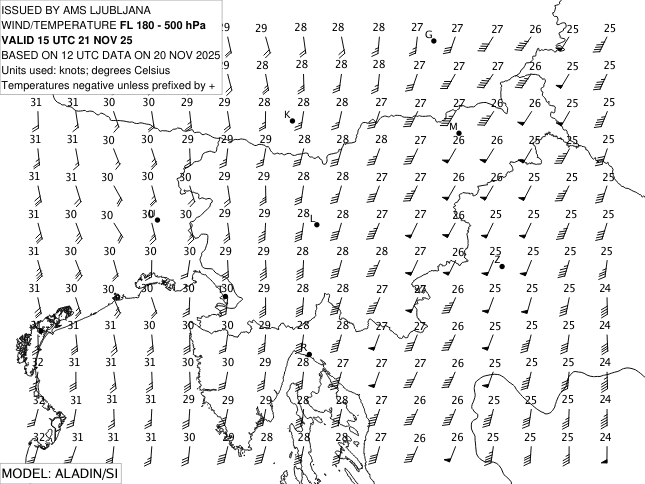 ISSUED BY AMS LJUBLJANA
WIND/TEMPERATURE FL 180 - 500 hPa
VALID 15 UTC 21 NOV 25
BASED ON 12 UTC DATA ON 20 NOV 2025
Units used: knots; degrees Celsius
Temperatures negative unless prefixed by +
29 28 28 28 28 27 27 27 26 25 25
G
29 28 28 28 28 27 27 27 26 25 25
31 31 30 30 29 29 28 28 28 27 27 27 26 26 25 25
K
M
31 31 30 30 29 29 28 28 28 28 27 26 26 25 25 25
31 30 30 30 30 29 28 28 28 27 27 26 26 25 25 25
31 30 30 30 30 29 29 28 28 27 27 26 25 25 25 25
U L
31 30 30 30 30 29 29 28 28 28 27 26 25 25 25 25
Z
31 30 30 30 30 30 29 28 28 27 27 26 25 25 25 24
31 31 31 30 30 30 29 28 28 27 27 26 25 25 25 24
R
32 31 31 30 30 30 29 28 27 27 27 26 25 25 25 24
32 31 31 31 30 29 28 28 28 27 26 26 25 25 25 24
32 31 31 31 30 29 28 28 28 27 26 26 25 25 25 24
MODEL: ALADIN/SI